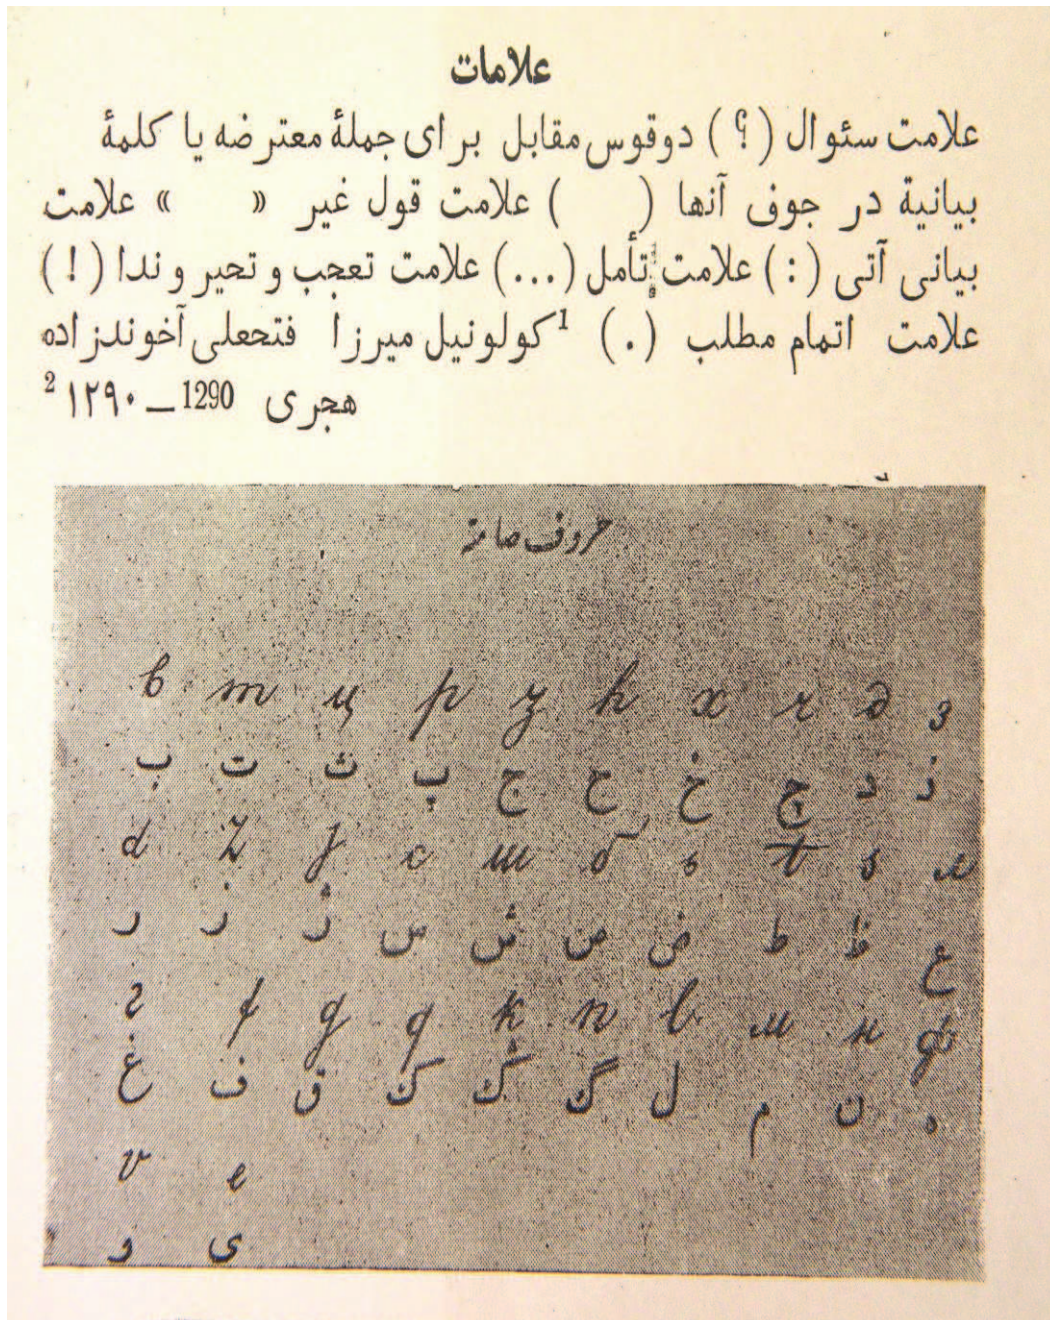 علامات
علامت سئوال (؟) دوقوس مقابل برای جملهٔ معترضه یا کلمهٔ
بیانیة در جوف آنها (   ) علامت قول غیر «   » علامت
بیانی آتی (:) علامت تأمل (...) علامت تعجب و تحیر و ندا (!)
علامت اتمام مطلب (.) ¹ کولونیل میرزا فتحعلی آخوندزاده
هجری 1290 – ۱۲۹۰ ²
حروف صامته
в т ц р з h х г д з
ب ت ث پ ج ح خ چ د ذ
d z j с ш б s t s
ر ز ژ س ش ص ض ط ظ ع
f g q k n l м н ф
غ ف ق ک ݣ گ ل م ن ه
v e
و ی